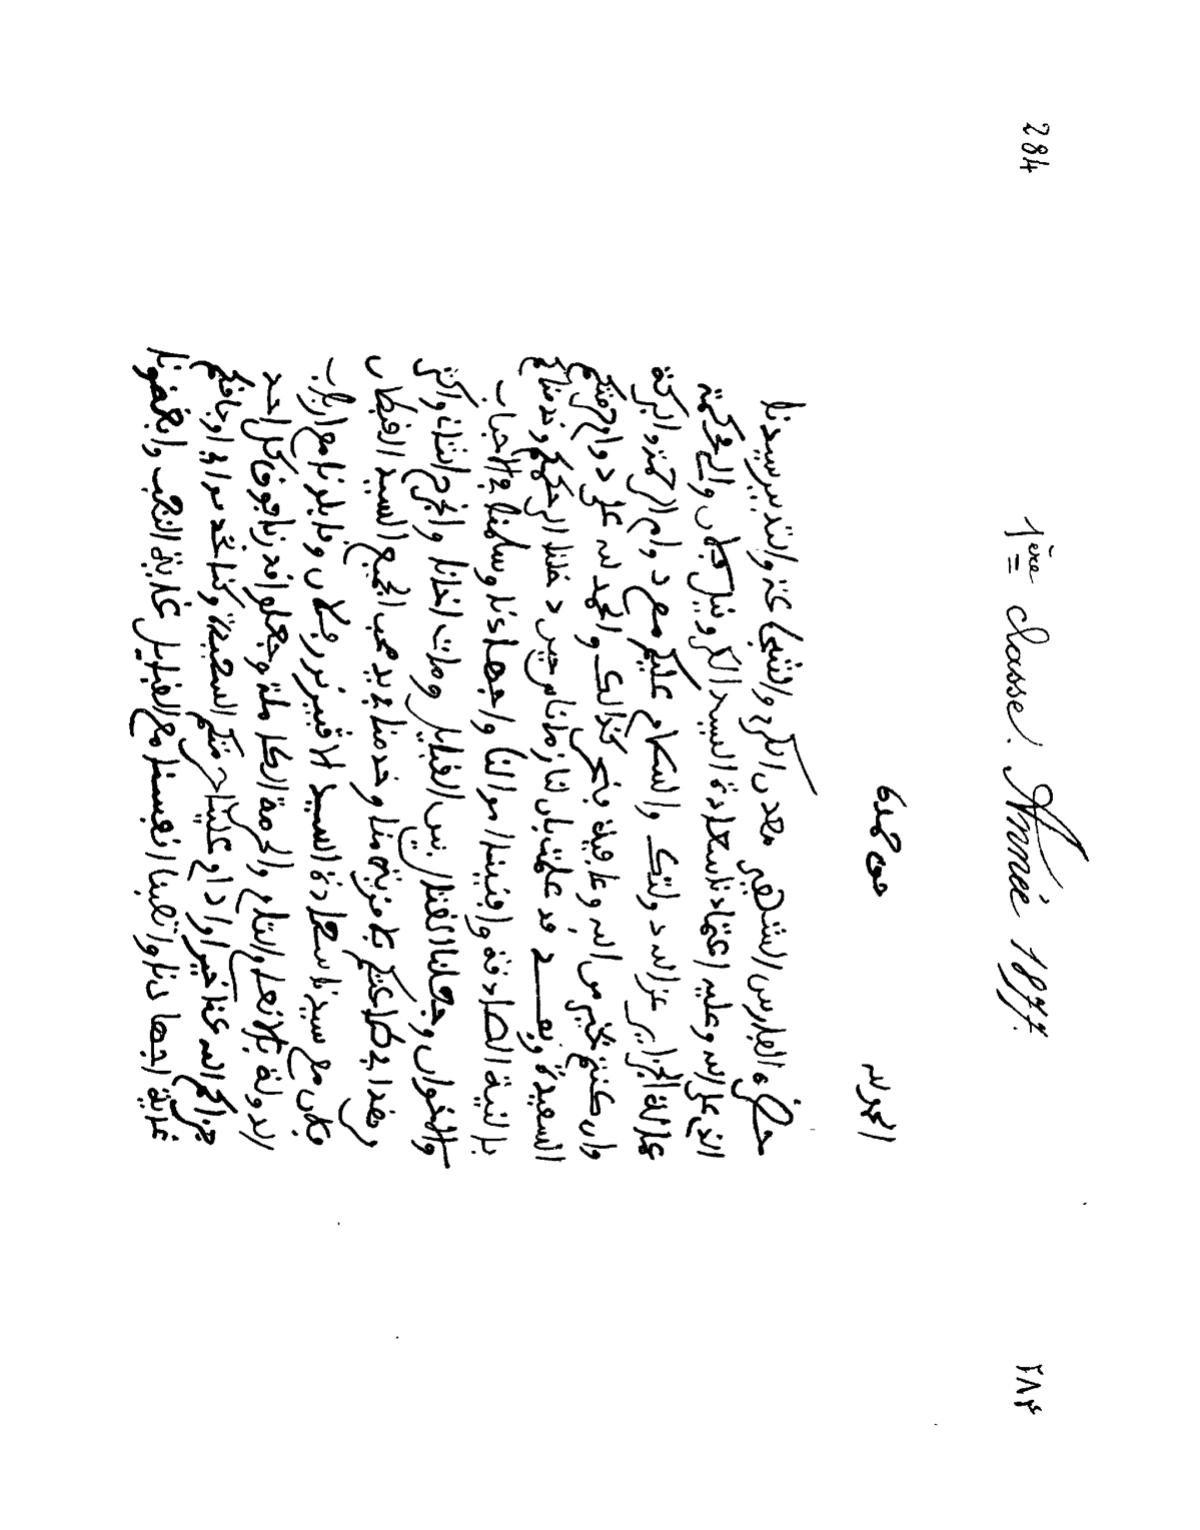 284
1ère classe. Année 1877.
٢٨٤
الحمد لله وحده
حضرة الفارس الشهير معدن الكرم والشجاعة والتدبير سيدنا
الذي على الله وعليه اعتمادنا سعادة السيد الكرونيل قبطان والي محكمة
عمالة الجزاير عز الله دولتك والسلام عليكم مع دوام الرحمة والبركة
وان كنتم بخير من الله وعافية فنحن كذالك والحمد لله على دوام حرمتكم
السعيدة وبعد قد علمت بان لنا زمانا من حين دخلنا الى حكمكم وخدمناكم
بالنية الصادقة وافنينا اموالنا واجهادنا وسلمنا في الاحباب
والاخوان وجعلنا القتل بين القبايل ومات اخانا وانجرح اثنان
وهذا في طاعتكم بلا مزية منا وخدمنا في يد محب الجميع السيد القبطان
فلان مع سيدنا سعادة السيد الافيسر فلان وقابلونا مع ارباب
الدولة بالانعام والتاج والحرمة الكاملة وجعلوا قدرنا فوق كل احد
جزاكم الله عنا خيرا وادام علينا حرمتكم السعيدة وكنا
غاية اجهادنا واتعبنا انفسنا مع القبايل غاية التعب وابغضونا